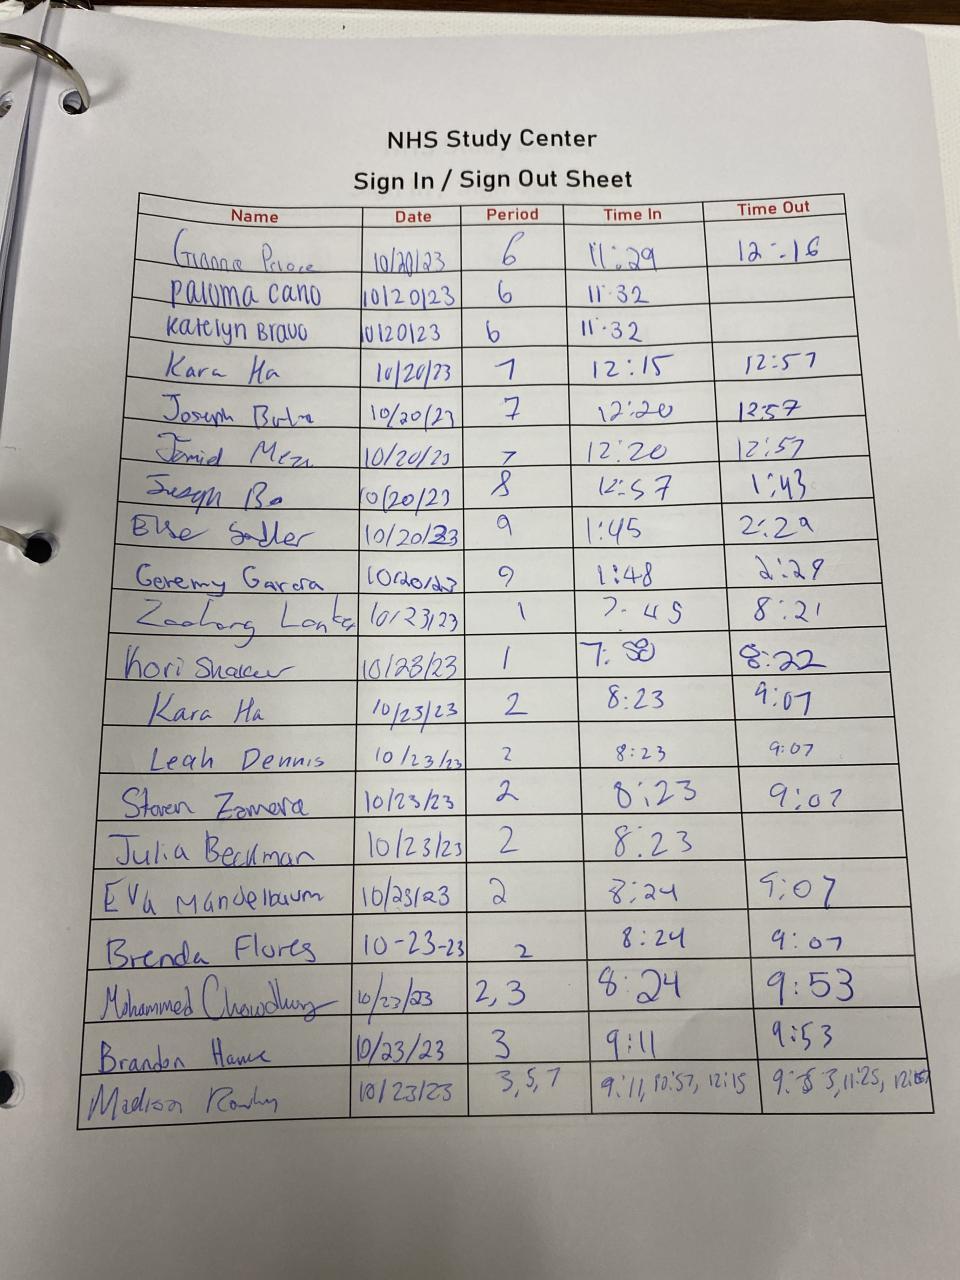 NHS Study Center
Sign In / Sign Out Sheet
Name Date Period Time In Time Out
10/20/23 6 11:29 12:16
Paloma Cano 10/20/23 6 11:32
Katelyn Bravo 10/20/23 6 11:32
Kara Ha 10/20/23 7 12:15 12:57
Joseph 10/20/23 7 12:20 12:57
10/20/23 7 12:20 12:57
Joseph 10/20/23 8 12:57 1:43
Sadler 10/20/23 9 1:45 2:29
Geremy Garcia 10/20/23 9 1:48 2:29
10/23/23 1 7:45 8:21
Kori 10/23/23 1 7: 8:22
Kara Ha 10/23/23 2 8:23 9:07
Leah Dennis 10/23/23 2 8:23 9:07
Steven Zamora 10/23/23 2 8:23 9:07
Julia Beckman 10/23/23 2 8:23
Eva Mandelbaum 10/23/23 2 8:24 9:07
Brenda Flores 10-23-23 2 8:24 9:07
Mohammed Chowdhury 10/23/23 2,3 8:24 9:53
Brandon 10/23/23 3 9:11 9:53
Madison 10/23/23 3,5,7 9:11, 10:57, 12:15 9:53, 11:25,